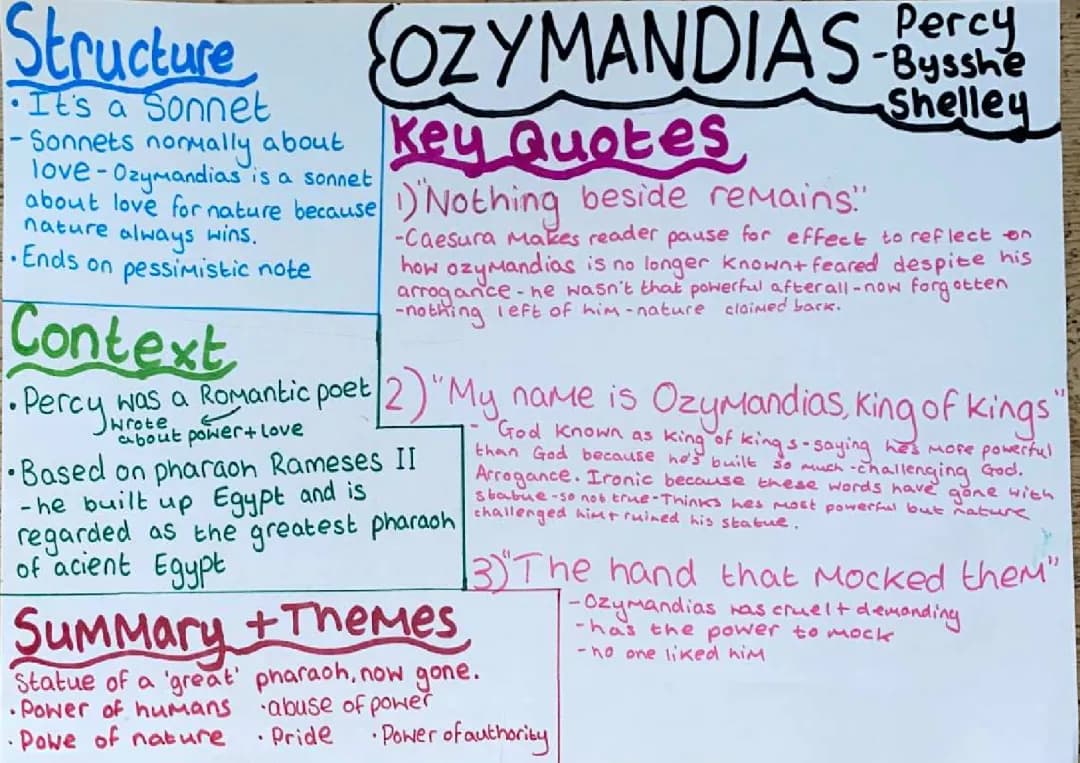 Structure
• It's a Sonnet
- Sonnets normally about
love - Ozymandias is a sonnet
about love for nature because
nature always wins.
• Ends on pessimistic note
Context
• Percy was a Romantic poet
wrote
about power + love
• Based on pharaoh Rameses II
- he built up Egypt and is
regarded as the greatest pharaoh
of acient Egypt
Summary + Themes
Statue of a 'great' pharaoh, now gone.
• Power of humans • abuse of power
• Powe of nature • Pride • Power of authority
OZYMANDIAS - Percy
Bysshe
Shelley
Key Quotes
1) "Nothing beside remains."
- Caesura makes reader pause for effect to reflect on
how ozymandias is no longer known + feared despite his
arrogance - he wasn't that powerful afterall - now forgotten
- nothing left of him - nature claimed back.
2) "My name is Ozymandias, King of kings"
- God known as king of kings - saying he's more powerful
than God because he's built so much - challenging God.
Arrogance. Ironic because these words have gone with
statue - so not true - Thinks hes most powerful but nature
challenged him + ruined his statue.
3) "The hand that mocked them"
- Ozymandias was cruel + demanding
- has the power to mock
- no one liked him